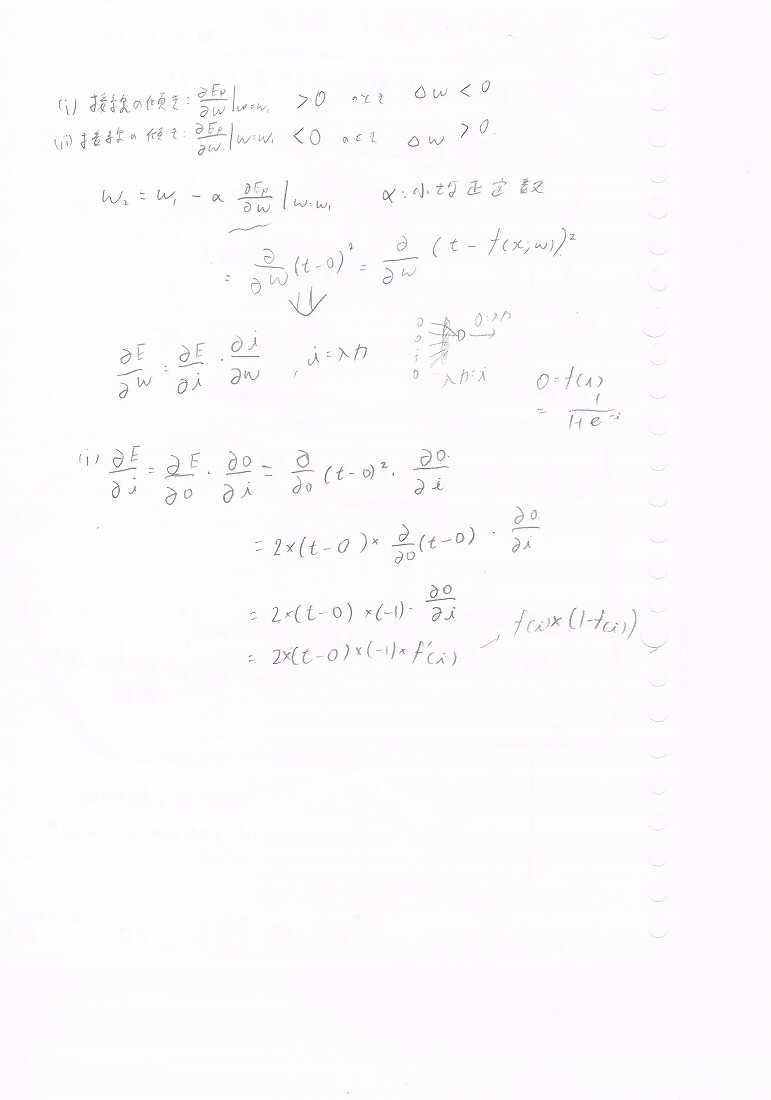 (i) 接線の傾き: ∂Ep/∂w |w=w₁ > 0 のとき Δw < 0
(ii) 接線の傾き: ∂Ep/∂w |w=w₁ < 0 のとき Δw > 0.
w₂ = w₁ - α ∂Ep/∂w |w=w₁ α: 小さな正定数
= ∂/∂w (t-o)² = ∂/∂w (t - f(x;w))²
⇓
∂E/∂w = ∂E/∂i · ∂i/∂w , i = 入力
o: 出力
入力: i
o = f(i)
= 1/(1+e^-i)
(i) ∂E/∂i = ∂E/∂o · ∂o/∂i = ∂/∂o (t-o)² · ∂o/∂i
= 2×(t-o)× ∂/∂o (t-o) · ∂o/∂i
= 2×(t-o)×(-1)· ∂o/∂i
= 2×(t-o)×(-1)×f'(i) → f(i)×(1-f(i))